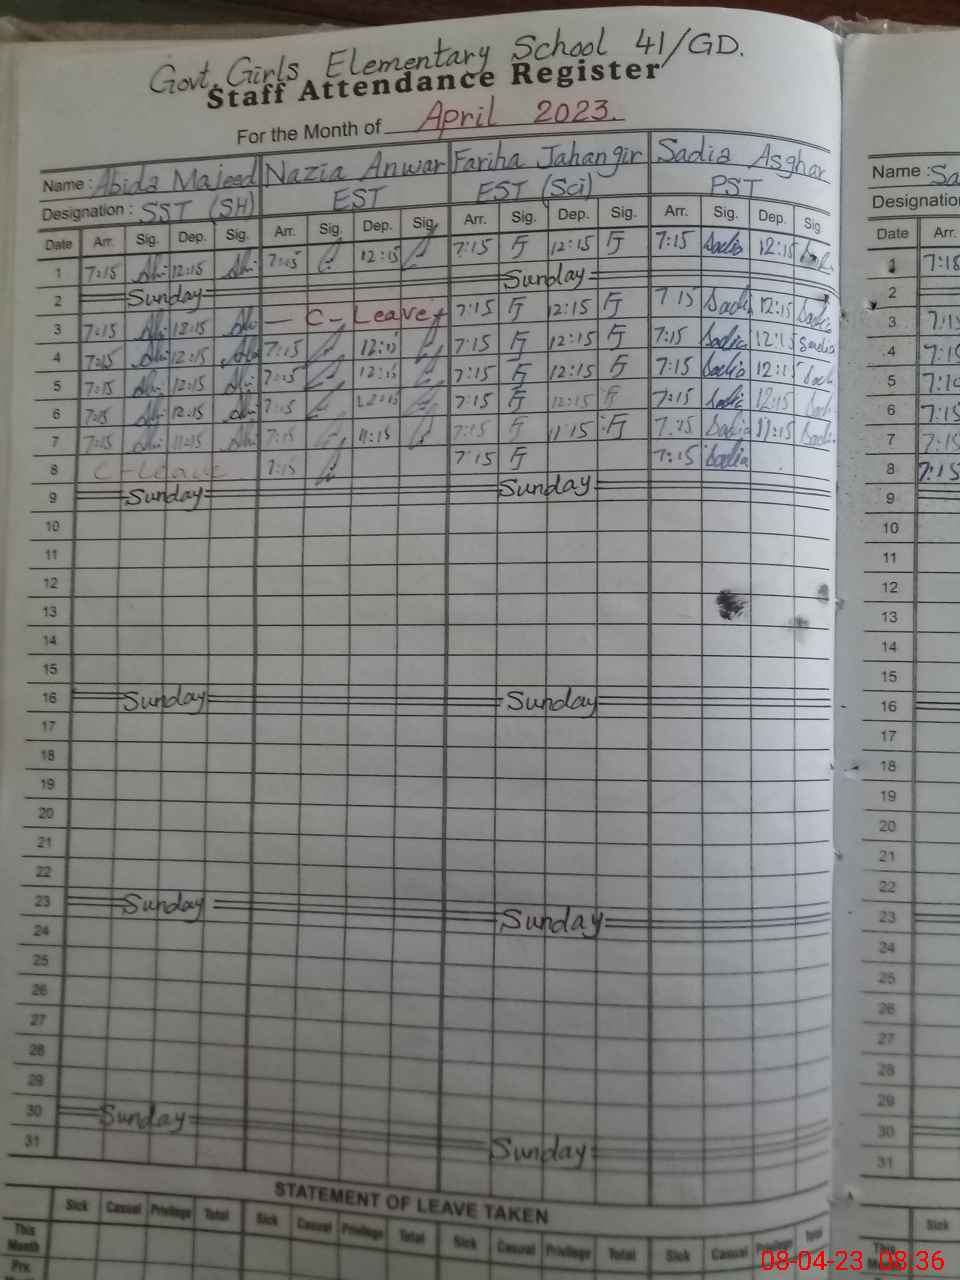 Govt. Girls Elementary School 41/GD.
Staff Attendance Register
For the Month of April 2023.
Name : Abida Majeed Nazia Anwar Fariha Jahangir Sadia Asghar
Designation : SST (SH) EST EST (Sci) PST
Date Arr. Sig. Dep. Sig. Arr. Sig. Dep. Sig. Arr. Sig. Dep. Sig. Arr. Sig. Dep. Sig.
1 7:15 12:15 7:15 12:15 7:15 FJ 12:15 FJ 7:15 Sadia 12:15
2 Sunday Sunday
3 7:15 12:15 C-Leave 7:15 FJ 12:15 FJ 7 15 Sadia 12:15 Sadia
4 7:15 12:15 7:15 12:15 7:15 FJ 12:15 FJ 7:15 Sadia 12:15 Sadia
5 7:15 12:15 7:15 12:15 7:15 FJ 12:15 FJ 7:15 Sadia 12:15
6 7:15 12:15 7:15 12:15 7:15 FJ 12:15 FJ 7:15 Sadia 12:15
7 7:15 11:15 7:15 11:15 7:15 FJ 11:15 FJ 7:15 Sadia 11:15 Sadia
8 C-Leave 7:15 7:15 FJ 7:15 Sadia
9 Sunday Sunday
10
11
12
13
14
15
16 Sunday Sunday
17
18
19
20
21
22
23 Sunday Sunday
24
25
26
27
28
29
30 Sunday Sunday
31
STATEMENT OF LEAVE TAKEN
Sick Casual Privilege Total Sick Casual Privilege Total Sick Casual Privilege Total Sick Casual Privilege Total
This Month
Prx.
Name : Sa
Designation
Date Arr.
1 7:15
2
3 7:15
4 7:15
5 7:10
6 7:15
7 7:15
8 7:15
9
10
11
12
13
14
15
16
17
18
19
20
21
22
23
24
25
26
27
28
29
30
31
Sick
This
08-04-23 08:36